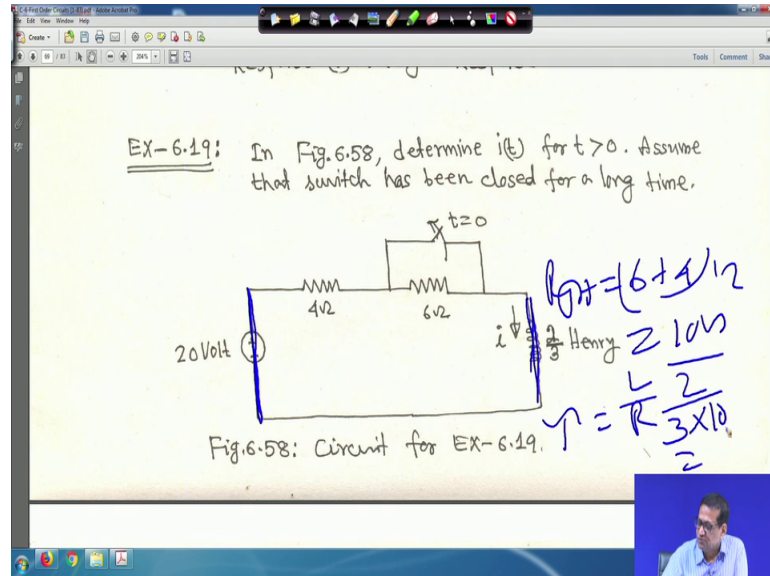 IC-6-First Order Circuits [1-83].pdf - Adobe Acrobat Pro
File Edit View Window Help
Create
69 / 83 204% Tools Comment Share
EX-6.19: In Fig.6.58, determine i(t) for t>0. Assume
that switch has been closed for a long time.
t=0
4Ω 6Ω
20 Volt i 2/3 Henry
Fig.6.58: Circuit for EX-6.19.
= (6+4)Ω
= 10Ω
τ = L/R 2/3×10
=